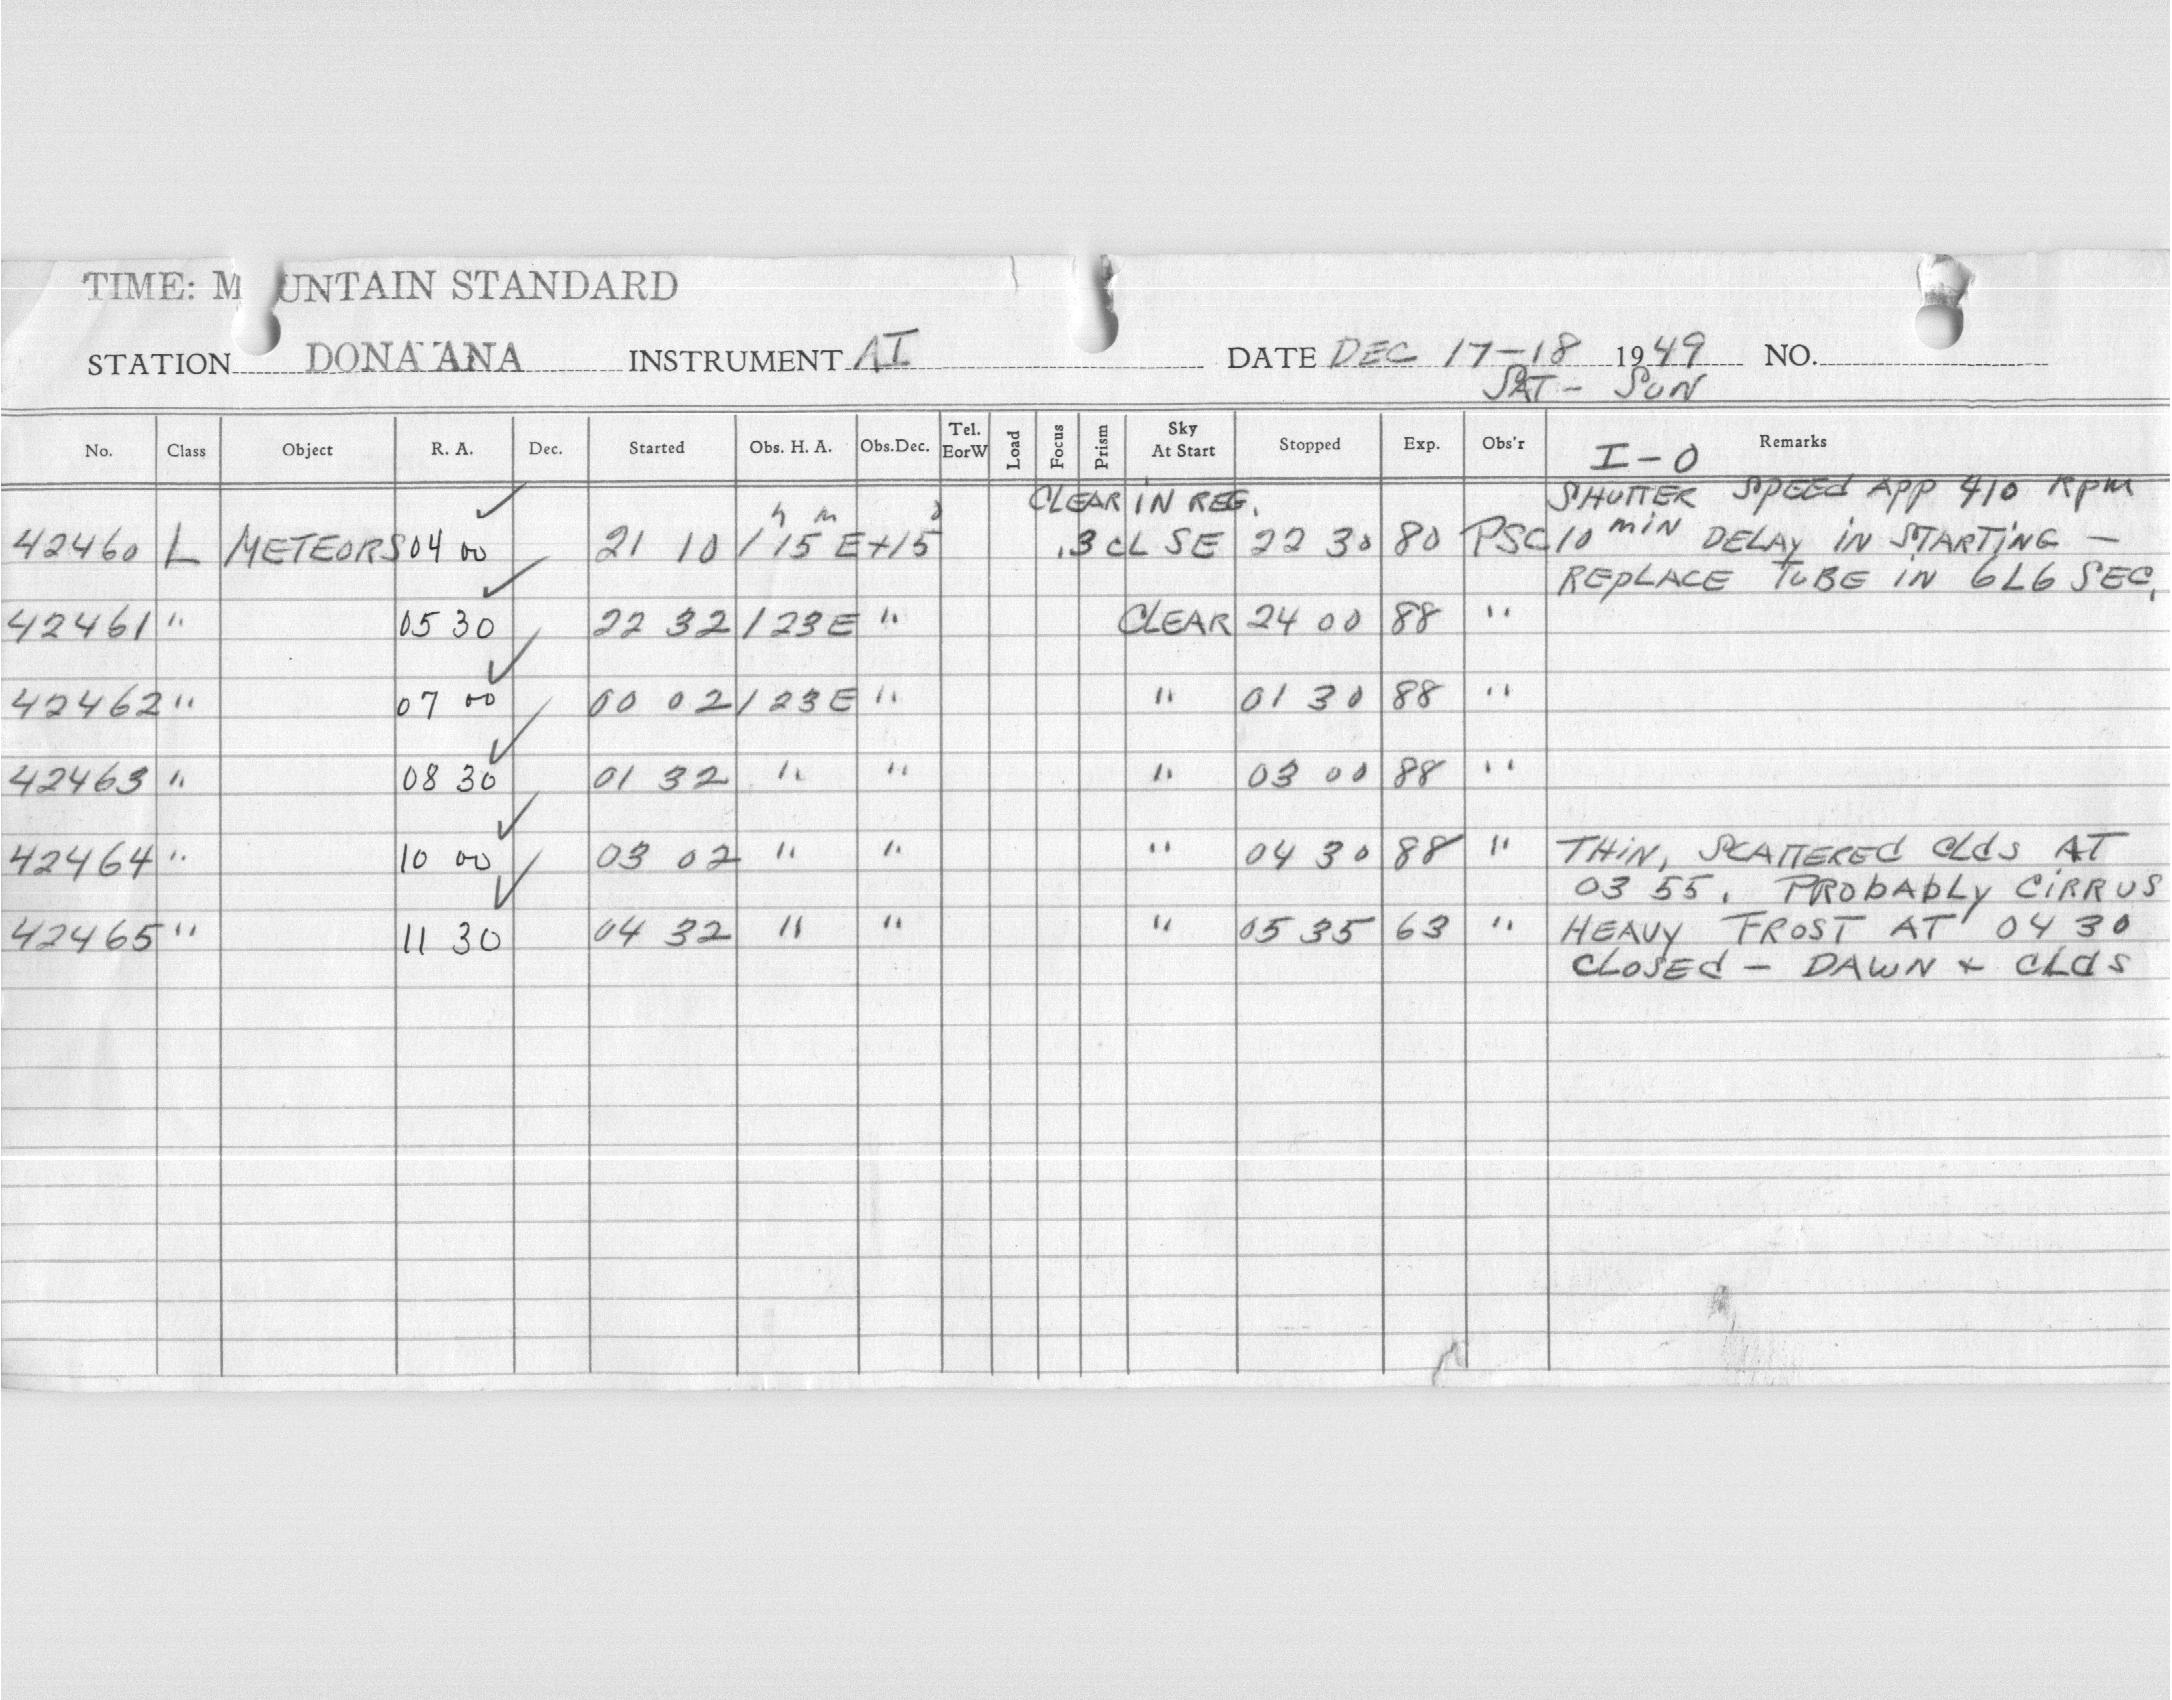 TIME: M UNTAIN STANDARD
STATION DONA ANA INSTRUMENT AI DATE DEC 17-18 1949 NO.
SAT - SUN
No. Class Object R. A. Dec. Started Obs. H. A. Obs.Dec. Tel. EorW Load Focus Prism Sky At Start Stopped Exp. Obs'r Remarks
I-0
CLEAR IN REG. SHUTTER SPEED APP 410 RPM
42460 L METEORS 04 00 21 10 1h 15m E +15° .3 CL SE 22 30 80 PSC 10 MIN DELAY IN STARTING -
REPLACE TUBE IN 6L6 SEC.
42461 " 05 30 22 32 1 23 E " CLEAR 24 00 88 "
42462 " 07 00 00 02 1 23 E " " 01 30 88 "
42463 " 08 30 01 32 " " " 03 00 88 "
42464 " 10 00 03 02 " " " 04 30 88 " THIN, SCATTERED CLDS AT
03 55. PROBABLY CIRRUS
42465 " 11 30 04 32 " " " 05 35 63 " HEAVY FROST AT 04 30
CLOSED - DAWN + CLDS